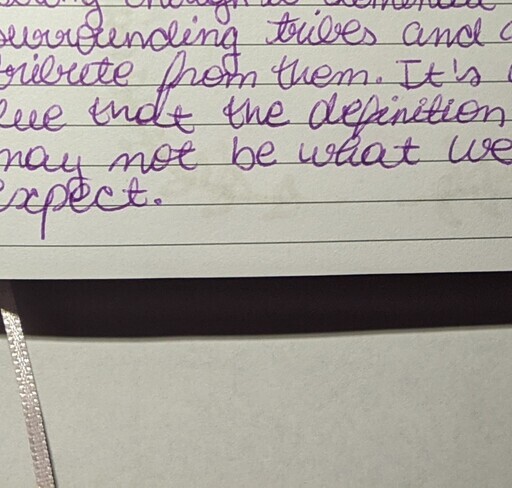 surrounding tribes and
tribute from them. It's
that the definition
may not be what we
expect.